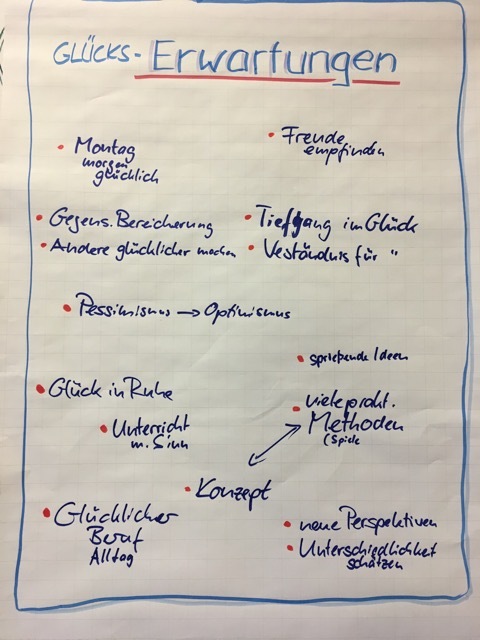 GLÜCKS - Erwartungen
• Montag
morgen
glücklich
• Freude
empfinden
• Gegens. Bereicherung
• Tiefgang im Glück
• Andere glücklicher machen
• Veständnis für "
• Pessimismus → Optimismus
• sprießende Ideen
• Glück in Ruhe
• viele prakt.
Methoden
(Spiele
• Unterricht
m. Sinn
• Konzept
• Glücklicher
Beruf
Alltag
• neue Perspektiven
• Unterschiedlichkeit
schätzen